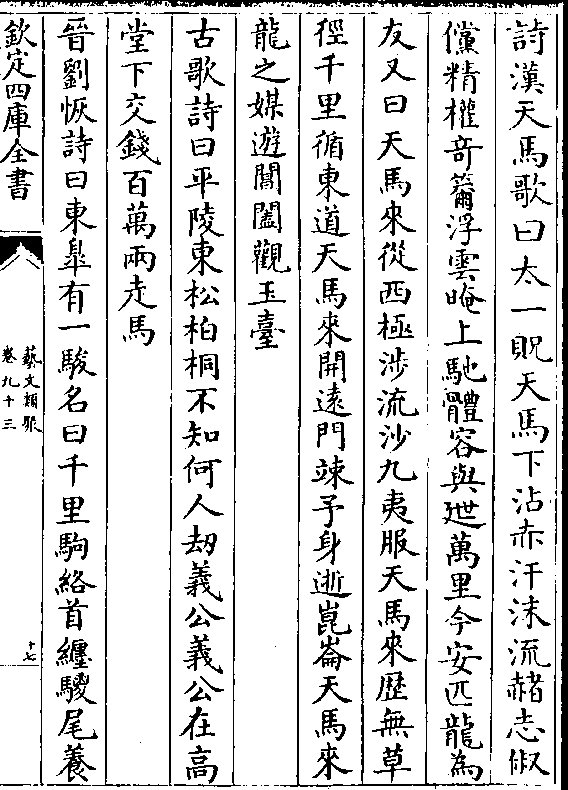 詩漢天馬歌曰太一貺天馬下沾赤汗沬流赭志俶
儻精權竒籋浮雲晻上馳體容與迣萬里今安匹龍為
友又曰天馬來從西極涉流沙九夷服天馬來歴無草
徑千里循東道天馬來開逺門竦予身逝崑崙天馬來
龍之媒遊閶闔觀玉臺
古歌詩曰平陵東松柏桐不知何人刼義公義公在高
堂下交錢百萬兩走馬
晉劉恢詩曰東臯有一駿名曰千里駒絡首纏騣尾養
欽定四庫全書
藝文類聚
卷九十三
十七